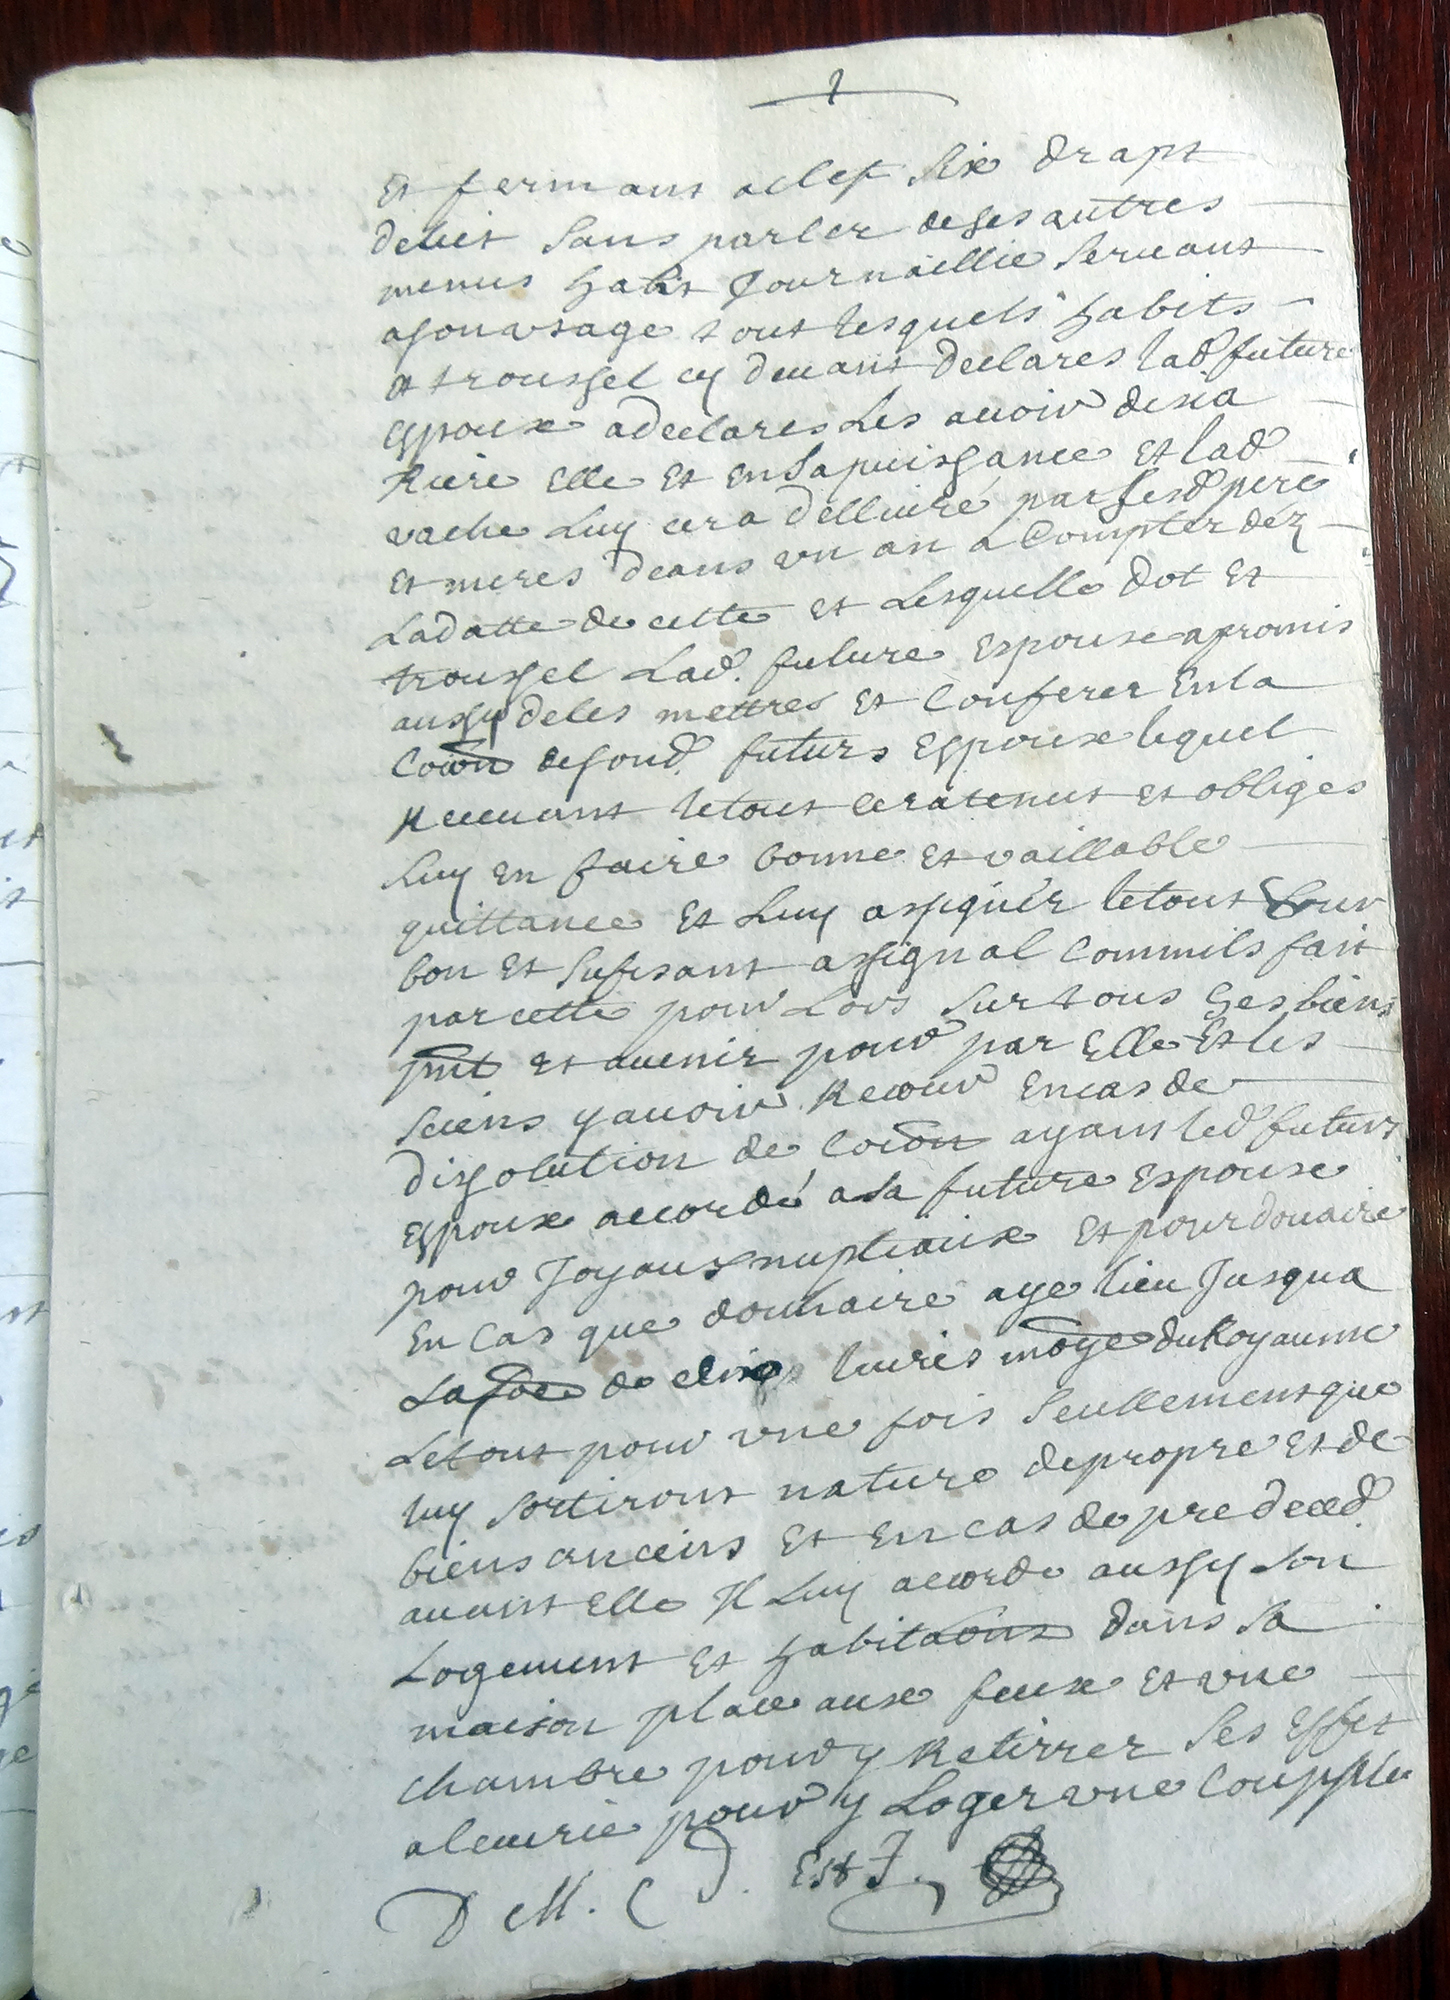 Et fermans a clef six drapt
delict sans parler deses autres
menus habit Journaillie servant
asonusage tout lesquels habits
et troussel cy devant declares lad. future
Espouse adeclares Les avoir desia
Riere Elle Et En Sa puissance Et lad.
vache Luy cera dellivré par sesd pere
Et meres deans un an a Compter dez
Ladatte de cette Et Lesquelle dot Et
troussel Lad. future Espouse apromis
aussy deles mettres Et Conferer Enla
Coion desond. futurs Espoux lequel
Recevant letout ceratenut et obliges
Luy En faire bonne Et vaillable
quittance Et Luy assigner letout sur
bon Et Sufisant assignal Commils fait
par cette pour Lors Surtous Ses biens
pnt Et avenir pour par Elle Et les
Siens y avoir Recour Encas de
dissolution de Coion ayant led futurs
Espoux accordé asa future Espouse
pour Joyaux nuptiaux Et pour douaire
En Cas que douhaire aye lieu Jusqua
La soe de livres moye du Royaume
Letout pour une fois Seullement que
luy Sortiront nature depropre Et de
biens anciens Et En cas de predeced.
avant Elle Il Luy accorde aussy Son
Logement Et habitaons dans Sa
maison place aux feux Et une
chambre pour y Retirrer Ses Effet
alecurie pour y Loger une Coupple
D M. C J. Est J.